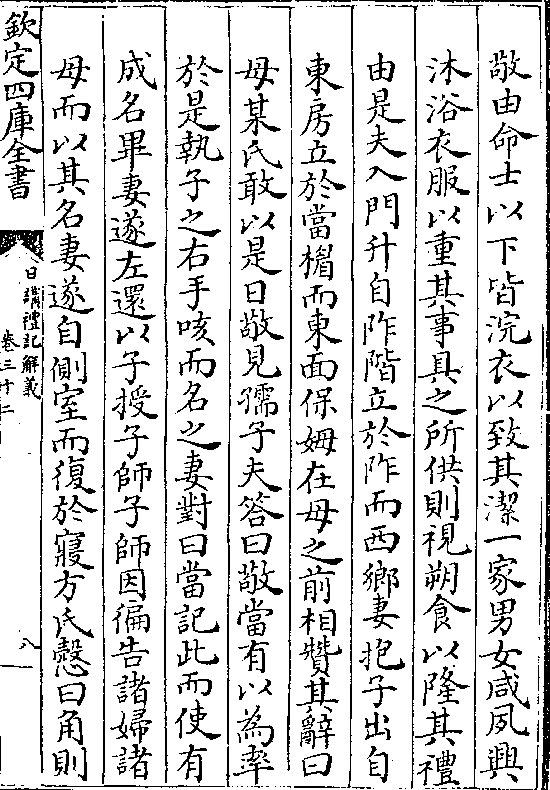 敬由命士以下皆浣衣以致其潔一家男女咸夙興
沐浴衣服以重其事具之所供則視朔食以隆其禮
由是夫入門升自阼階立於阼而西鄉妻抱子出自
東房立於當楣而東面保姆在母之前相贊其辭曰
母某氏敢以是日敬見孺子夫答曰敬當有以為率
於是執子之右手咳而名之妻對曰當記此而使有
成名畢妻遂左還以子授子師子師因徧告諸婦諸
母而以其名妻遂自側室而復於寢方氏慤曰角則
欽定四庫全書
日講禮記解義
卷三十二
八